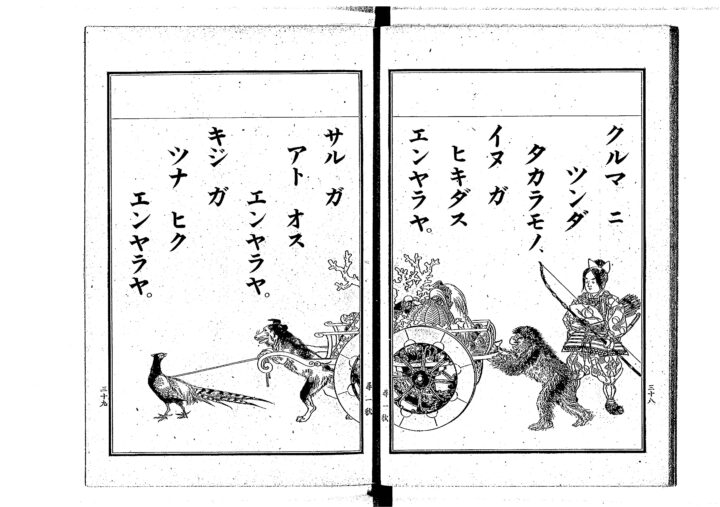 クルマ ニ
ツンダ
タカラモノ、
イヌ ガ
ヒキダス
エンヤラヤ。
二十八
尋一牧
サル ガ
アト オス
エンヤラヤ。
キジ ガ
ツナ ヒク
エンヤラヤ。
尋一牧
二十九